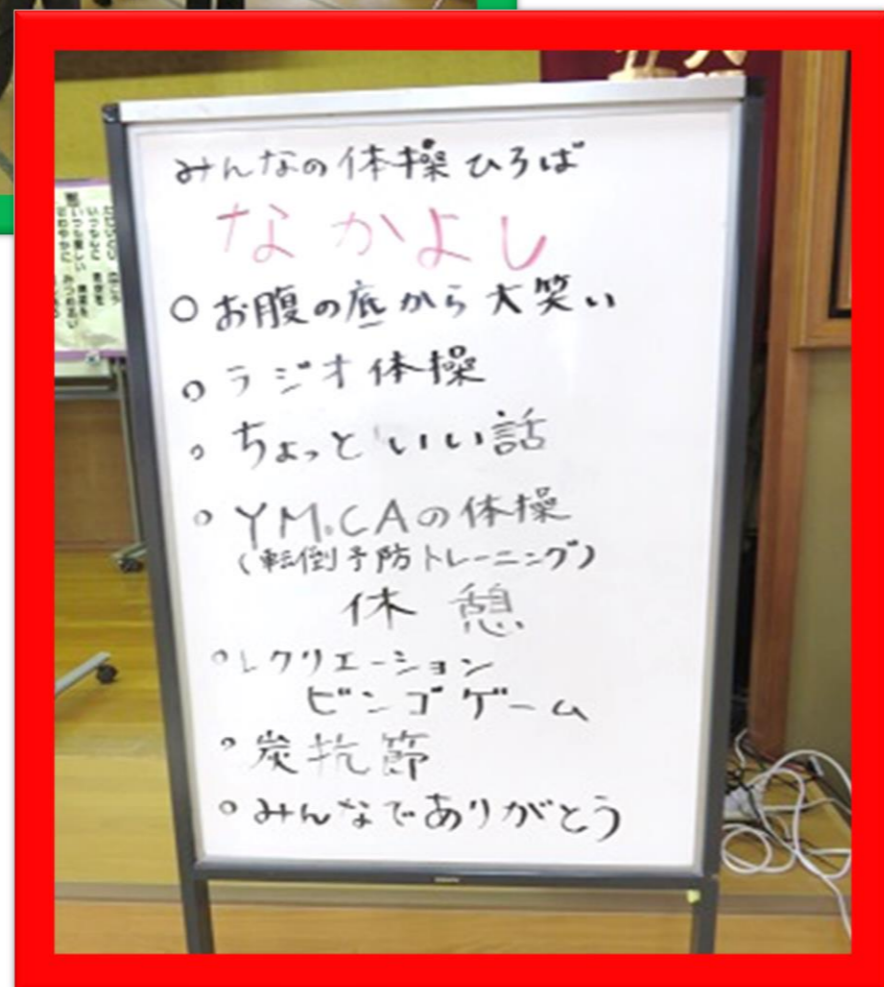 みんなの体操ひろば
なかよし
○お腹の底から大笑い
○ラジオ体操
○ちょっといい話
○YM.CAの体操
(転倒予防トレーニング)
休憩
○レクリエーション
ビンゴゲーム
○炭坑節
○みんなでありがとう